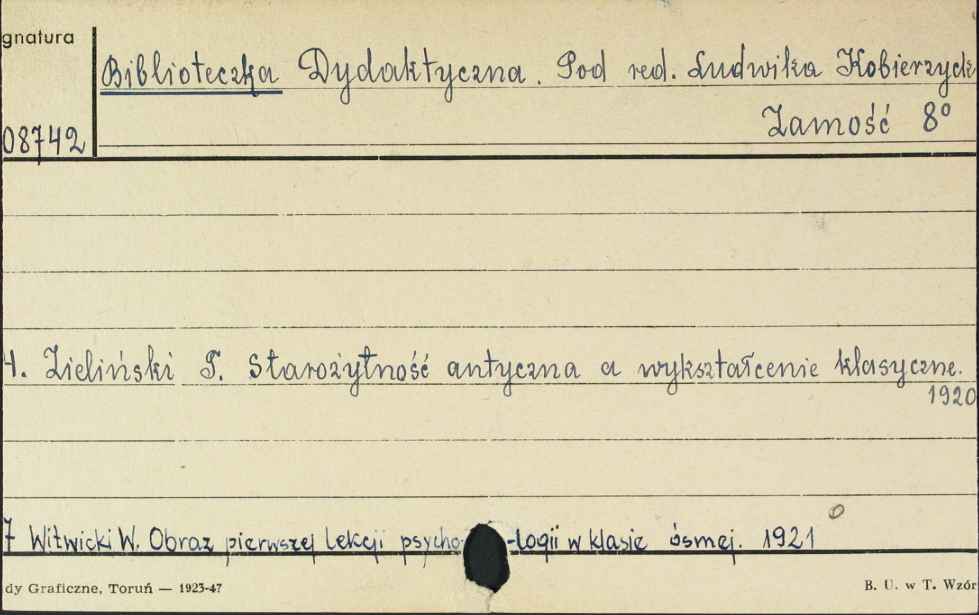 gnatura
Biblioteczka Dydaktyczna. Pod red. Ludwika Kobierzyck
Zamość 8°
08742
4. Zieliński T. Starożytność antyczna a wykształcenie klasyczne.
1920
7 Witwicki W. Obraz pierwszej lekcji psycho-logii w klasie ósmej. 1921
dy Graficzne, Toruń — 1923-47
B. U. w T. Wzór